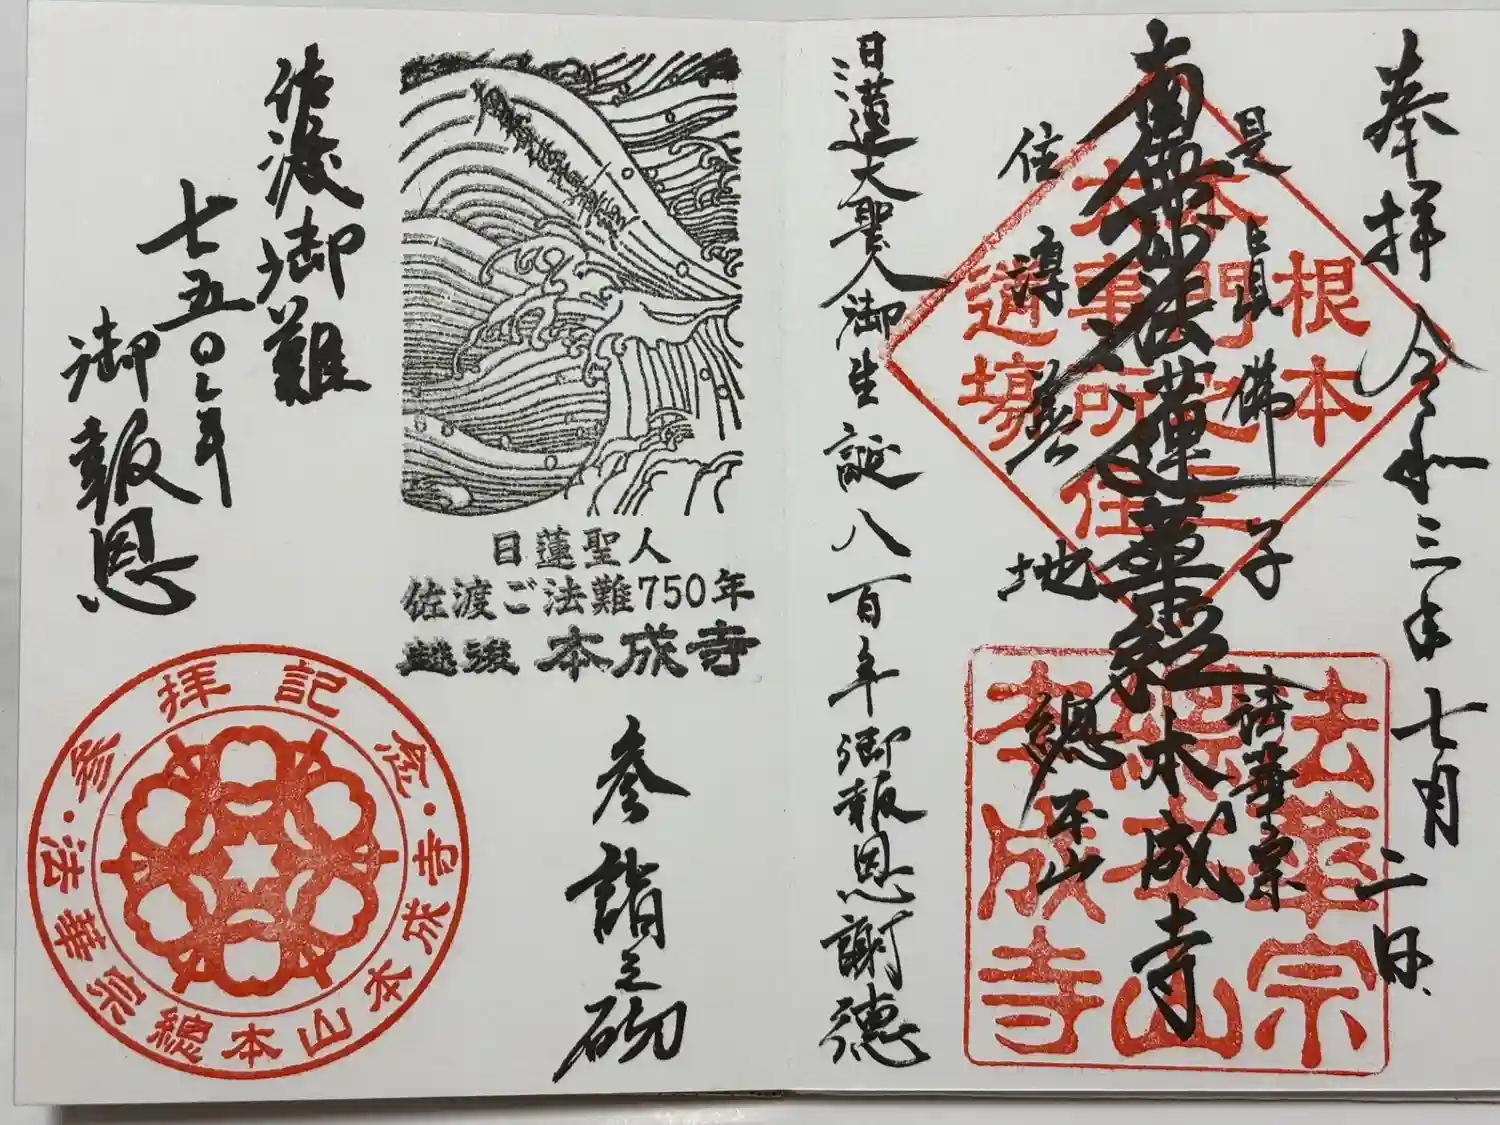 奉拝 令和三年七月二日
是真佛子
南無妙法蓮華経
住淳善地
法華宗
本成寺
總本山
日蓮大聖人御生誕八百年御報恩謝徳
根本
本門三
大事所住
道場
法華宗
總本山
本成寺
佐渡御難
七五〇年
御報恩
日蓮聖人
佐渡ご法難750年
越後 本成寺
参詣之砌
参拝記念
法華宗總本山本成寺